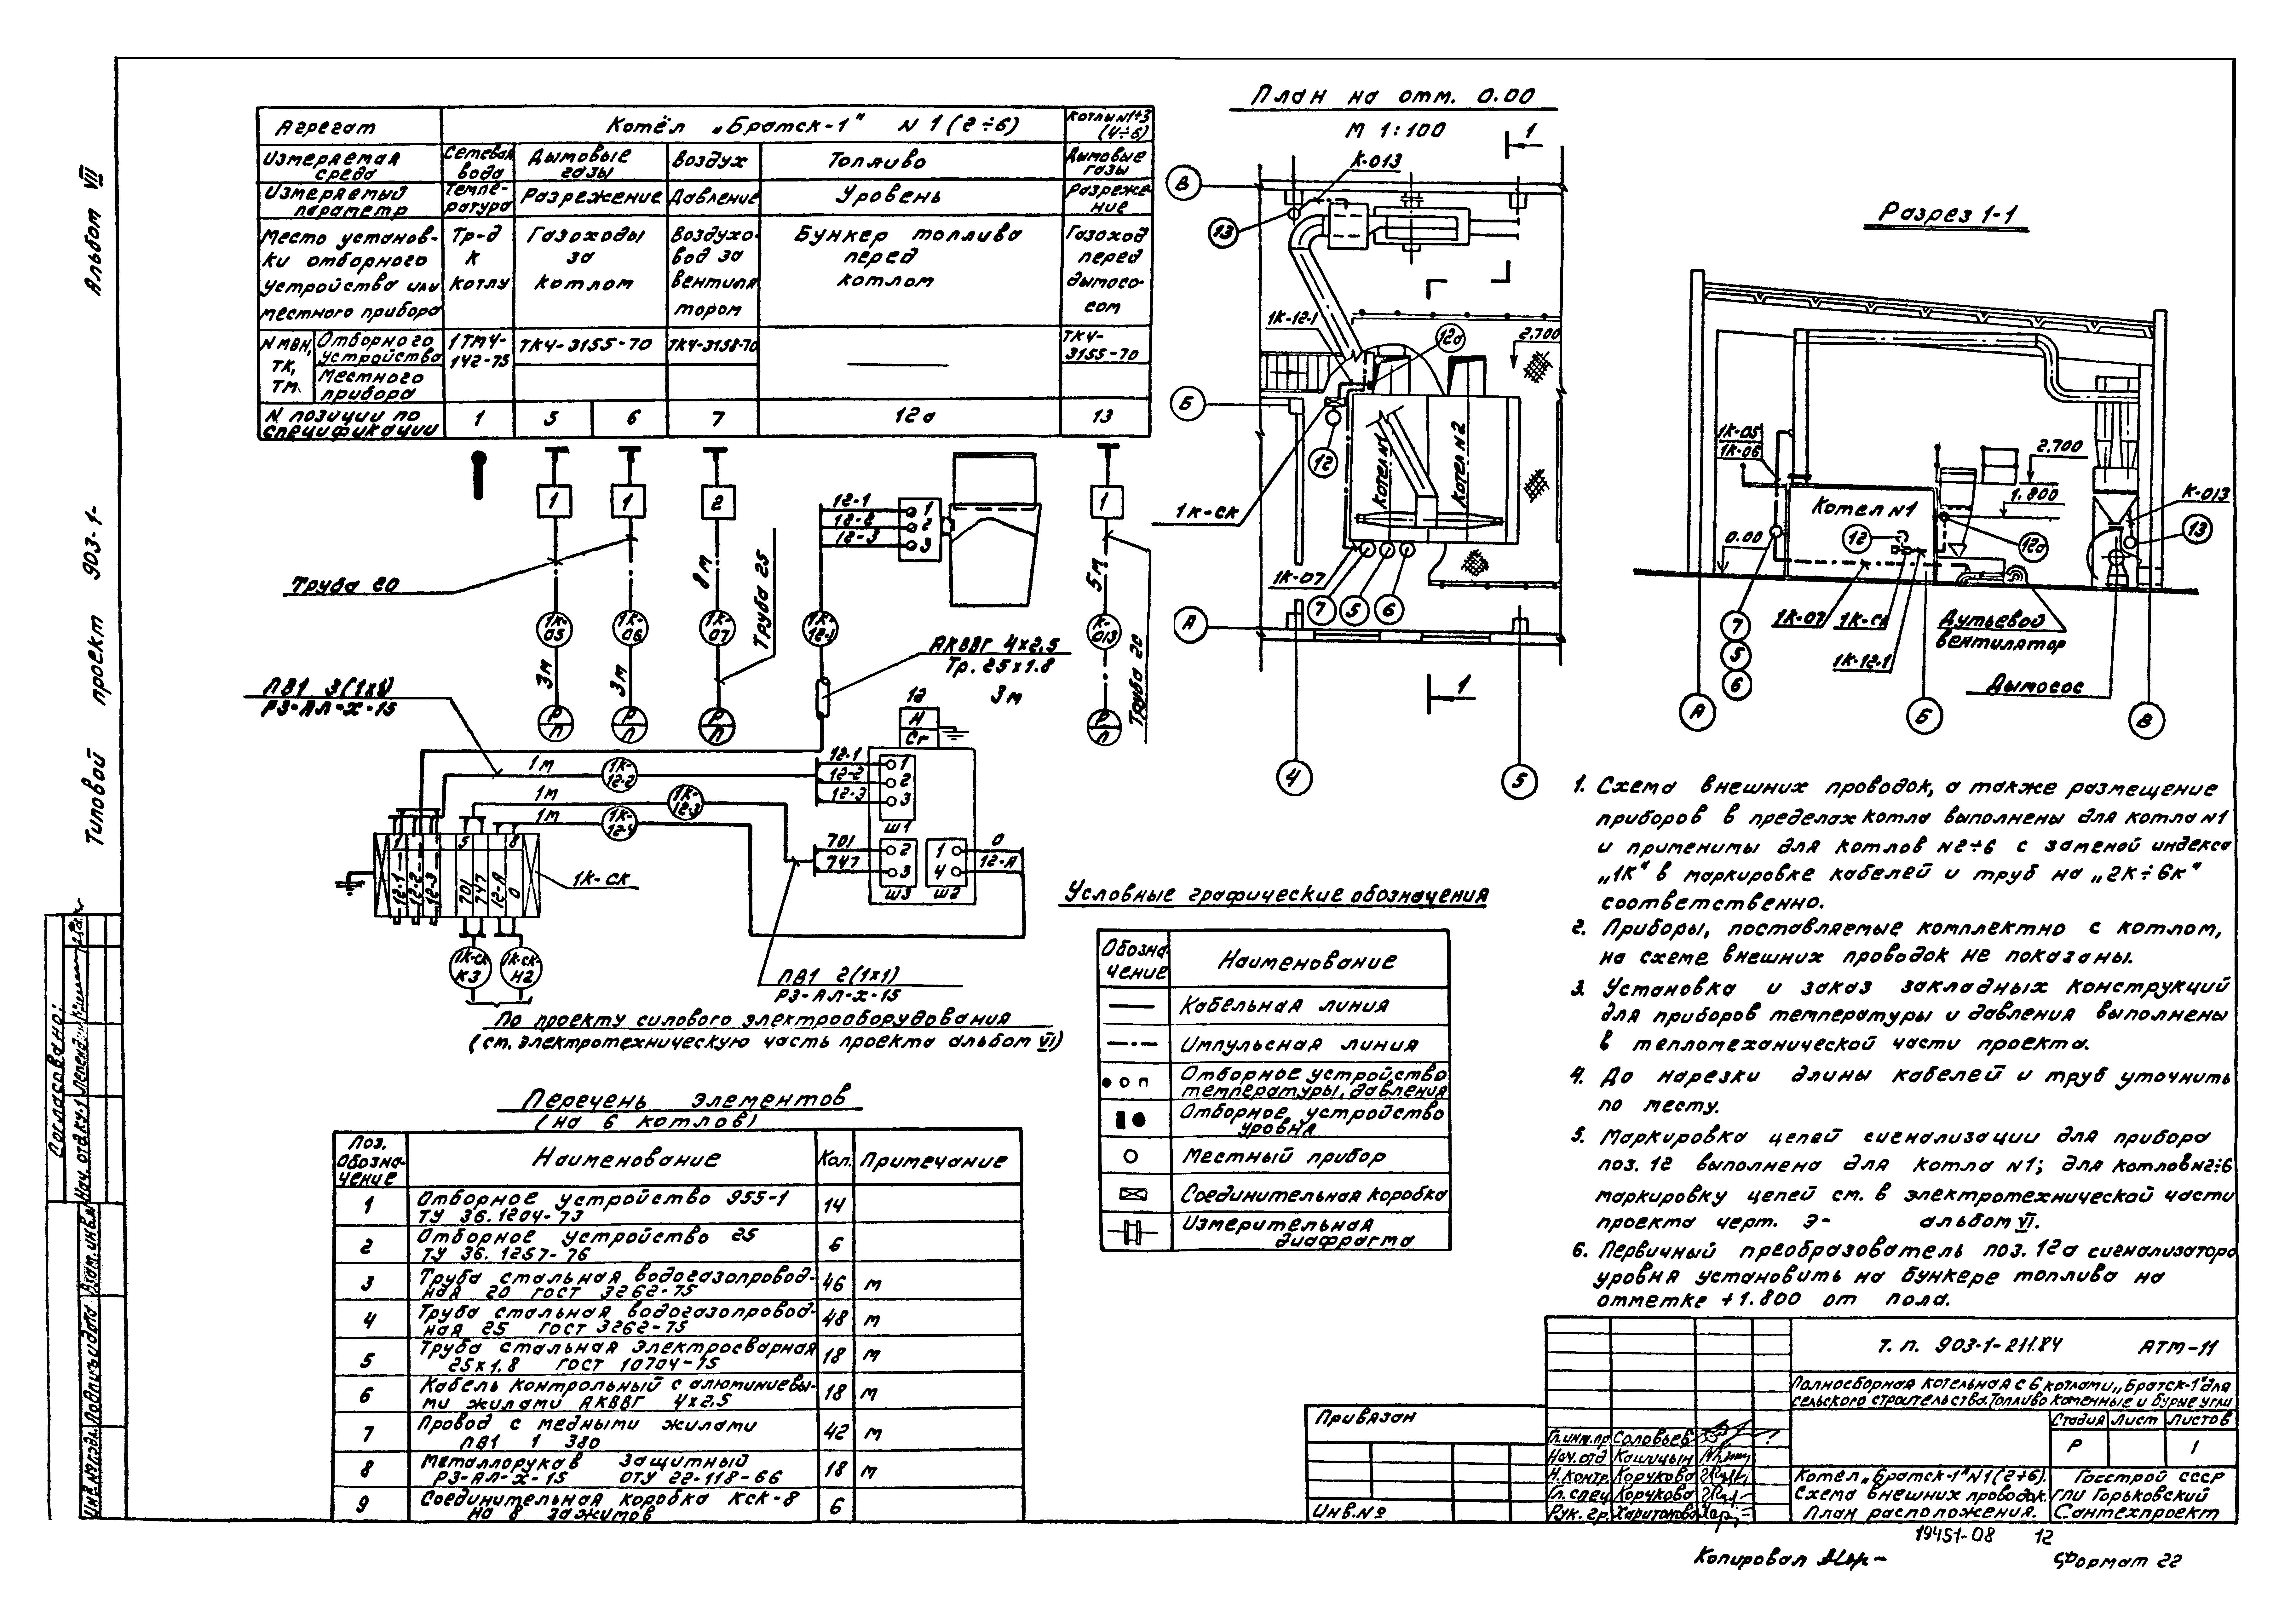 Альбом VII
Типовой проект 903-1-
Агрегат
Котёл „Братск-1" N 1 (2÷6)
Котлы N1÷3
(4÷6)
Измеряемая
среда
Сетевая
вода
Дымовые
газы
Воздух
Топливо
Дымовые
газы
Измеряемый
параметр
Темпе-
ратура
Разрежение
Давление
Уровень
Разреже-
ние
Место установ-
ки отборного
устройства или
местного прибора
Тр-д
к
котлу
Газоходы
за
котлом
Воздухо-
вод за
вентиля
тором
Бункер топлива
перед
котлом
Газоход
перед
дымосо-
сом
N МВН,
ТК,
ТМ.
Отборного
устройства
Местного
прибора
1ТМ4-
142-75
ТК4-3155-70
ТК4-3158-70
ТК4-
3155-70
N позиции по
спецификации
1
5
6
7
12а
13
1
1
2
1
12-1
12-2
12-3
1
2
3
Труба 20
8м
Труба 25
5м
Труба 20
1К-
05
1К-
06
1К-
07
1К-
12-1
К-
013
3м
3м
АКВВГ 4х2,5
Тр. 25х1.8
3м
ПВ1 3(1х1)
РЗ-АЛ-Х-15
Р
П
Р
П
Р
П
Р
П
12
Н
Сг
1м
1К-
12-2
1м
1К-
12-3
1м
1К-
12-4
12-1
12-2
12-3
1
2
3
Ш1
701
747
2
3
Ш3
1
4
Ш2
0
12-А
1
5
8
12-1
12-2
12-3
701
747
12-А
0
1К-СК
1К-СК
К3
1К-СК-
Н2
ПВ1 2(1х1)
РЗ-АЛ-Х-15
По проекту силового электрооборудования
(см. электротехническую часть проекта альбом VI)
План на отм. 0.00
М 1:100
1
К-013
В
13
1К-12-1
12а
2.700
Б
12
Котел N1
Котел N2
1К-СК
1К-07
7
5
6
А
1
4
5
Разрез 1-1
1К-05
1К-06
2.700
1.800
К-013
Котел N1
12
12а
13
0.00
1К-07
1К-СК
1К-12-1
Дутьевой
вентилятор
Дымосос
7
5
6
А
Б
В
Условные графические обозначения
Обозна-
чение
Наименование
Кабельная линия
Импульсная линия
Отборное устройство
температуры, давления
Отборное устройство
уровня
Местный прибор
Соединительная коробка
Измерительная
диафрагма
1. Схема внешних проводок, а также размещение
приборов в пределах котла выполнены для котла N1
и применимы для котлов N2÷6 с заменой индекса
„1К" в маркировке кабелей и труб на „2К÷6К"
соответственно.
2. Приборы, поставляемые комплектно с котлом,
на схеме внешних проводок не показаны.
3. Установка и заказ закладных конструкций
для приборов температуры и давления выполнены
в тепломеханической части проекта.
4. До нарезки длины кабелей и труб уточнить
по месту.
5. Маркировка цепей сигнализации для прибора
поз. 12 выполнена для котла N1; для котлов N2÷6
маркировку цепей см. в электротехнической части
проекта черт. Э- альбом VI.
6. Первичный преобразователь поз. 12а сигнализатора
уровня установить на бункере топлива на
отметке +1.800 от пола.
Перечень элементов
(на 6 котлов)
Поз.
Обозна-
чение
Наименование
Кол.
Примечание
1
Отборное устройство 955-1
ТУ 36.1204-73
14
2
Отборное устройство 25
ТУ 36.1257-76
6
3
Труба стальная водогазопровод-
ная 20 ГОСТ 3262-75
46 м
4
Труба стальная водогазопровод-
ная 25 ГОСТ 3262-75
48 м
5
Труба стальная электросварная
25х1,8 ГОСТ 10704-75
18 м
6
Кабель контрольный с алюминиевы-
ми жилами АКВВГ 4х2,5
18 м
7
Провод с медными жилами
ПВ1 1 380
42 м
8
Металлорукав защитный
РЗ-АЛ-Х-15 ОТУ 22-118-66
18 м
9
Соединительная коробка КСК-8
на 8 зажимов
6
Согласовано:
Нач. отд КУ-1
Взам. инв.N
Подпись и дата
Инв. N подл.
Привязан
Инв. №
Т. п. 903-1-211.84 АТМ-11
Полносборная котельная с 6 котлами „Братск-1" для
сельского строительства. Топливо каменные и бурые угли
Стадия Лист Листов
Р 1
Гл. инж. пр Соловьев
Нач. отд Кашицын
Н. контр. Корчукова
Гл. спец Корчукова
Рук. гр. Харитонова
Котёл „Братск-1" N1 (2÷6).
Схема внешних проводок.
План расположения.
Госстрой СССР
ГПИ Горьковский
Сантехпроект
19451-08 12
Копировал
Формат 22